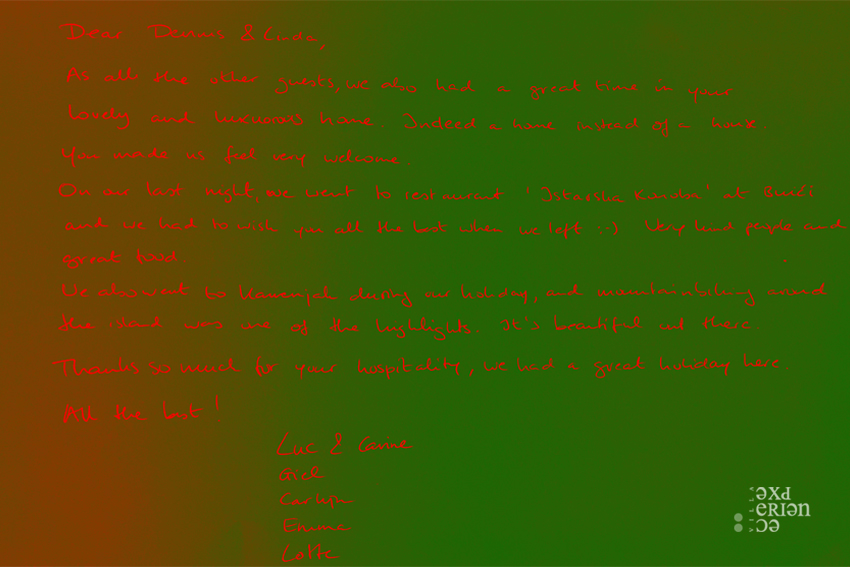 Dear Dennis & Linda,
As all the other guests, we also had a great time in your
lovely and luxurous home. Indeed a home instead of a house.
You made us feel very welcome
On our last night, we went to restaurant 'Istarska Konoba' at
and we had to wish you all the best when we left :-) Very kind people and
great food.
We also went to Kamenjak during our holiday, and mountainbiking around
the island was one of the highlights. It's beautiful out there.
Thanks so much for your hospitality, we had a great holiday here.
All the best!
Luc &
Emma
Lotte
VILLA
EXPERIENCE